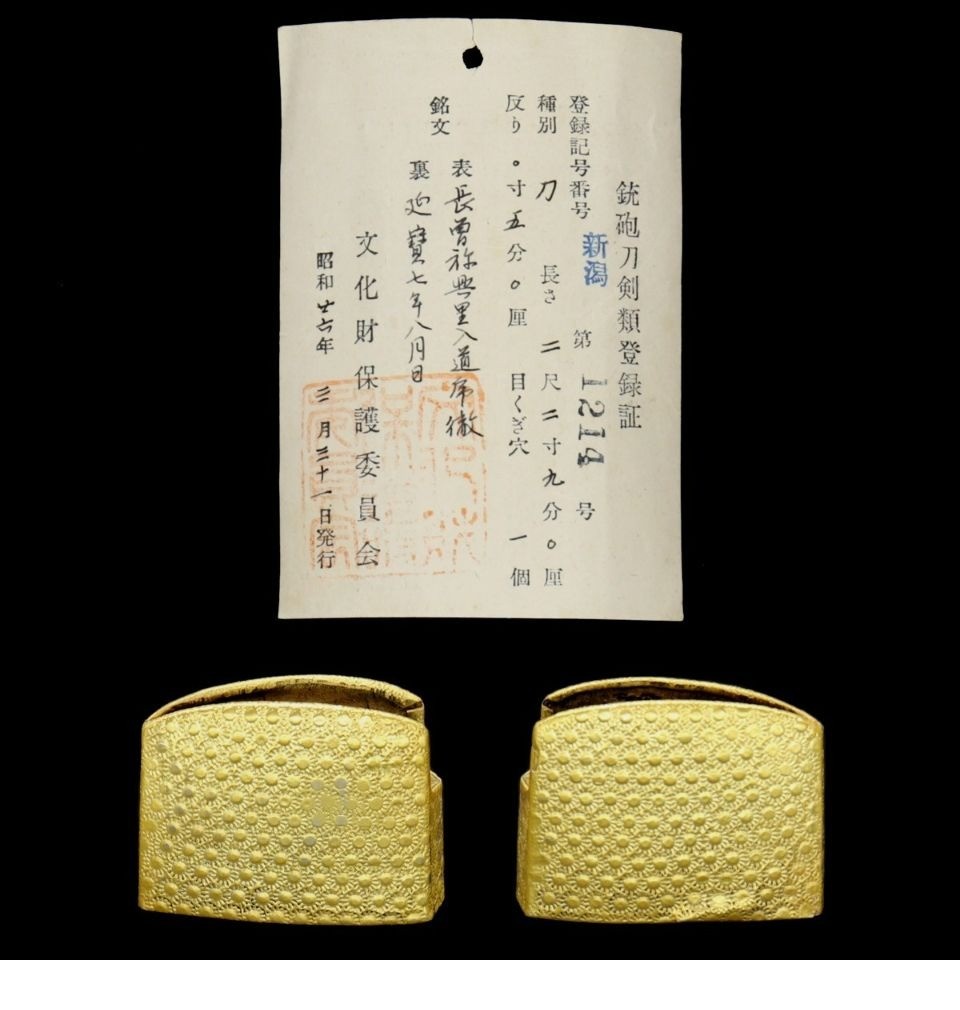 銃砲刀剣類登録証
登録記号番号 新潟 第 1214 号
種別 刀 長さ 二尺二寸九分〇厘
反り 〇寸五分〇厘 目くぎ穴 一個
銘文 表 長曽祢興里入道乕徹
裏 延寶七年八月日
文化財保護委員会
昭和廿六年 三月三十一日発行